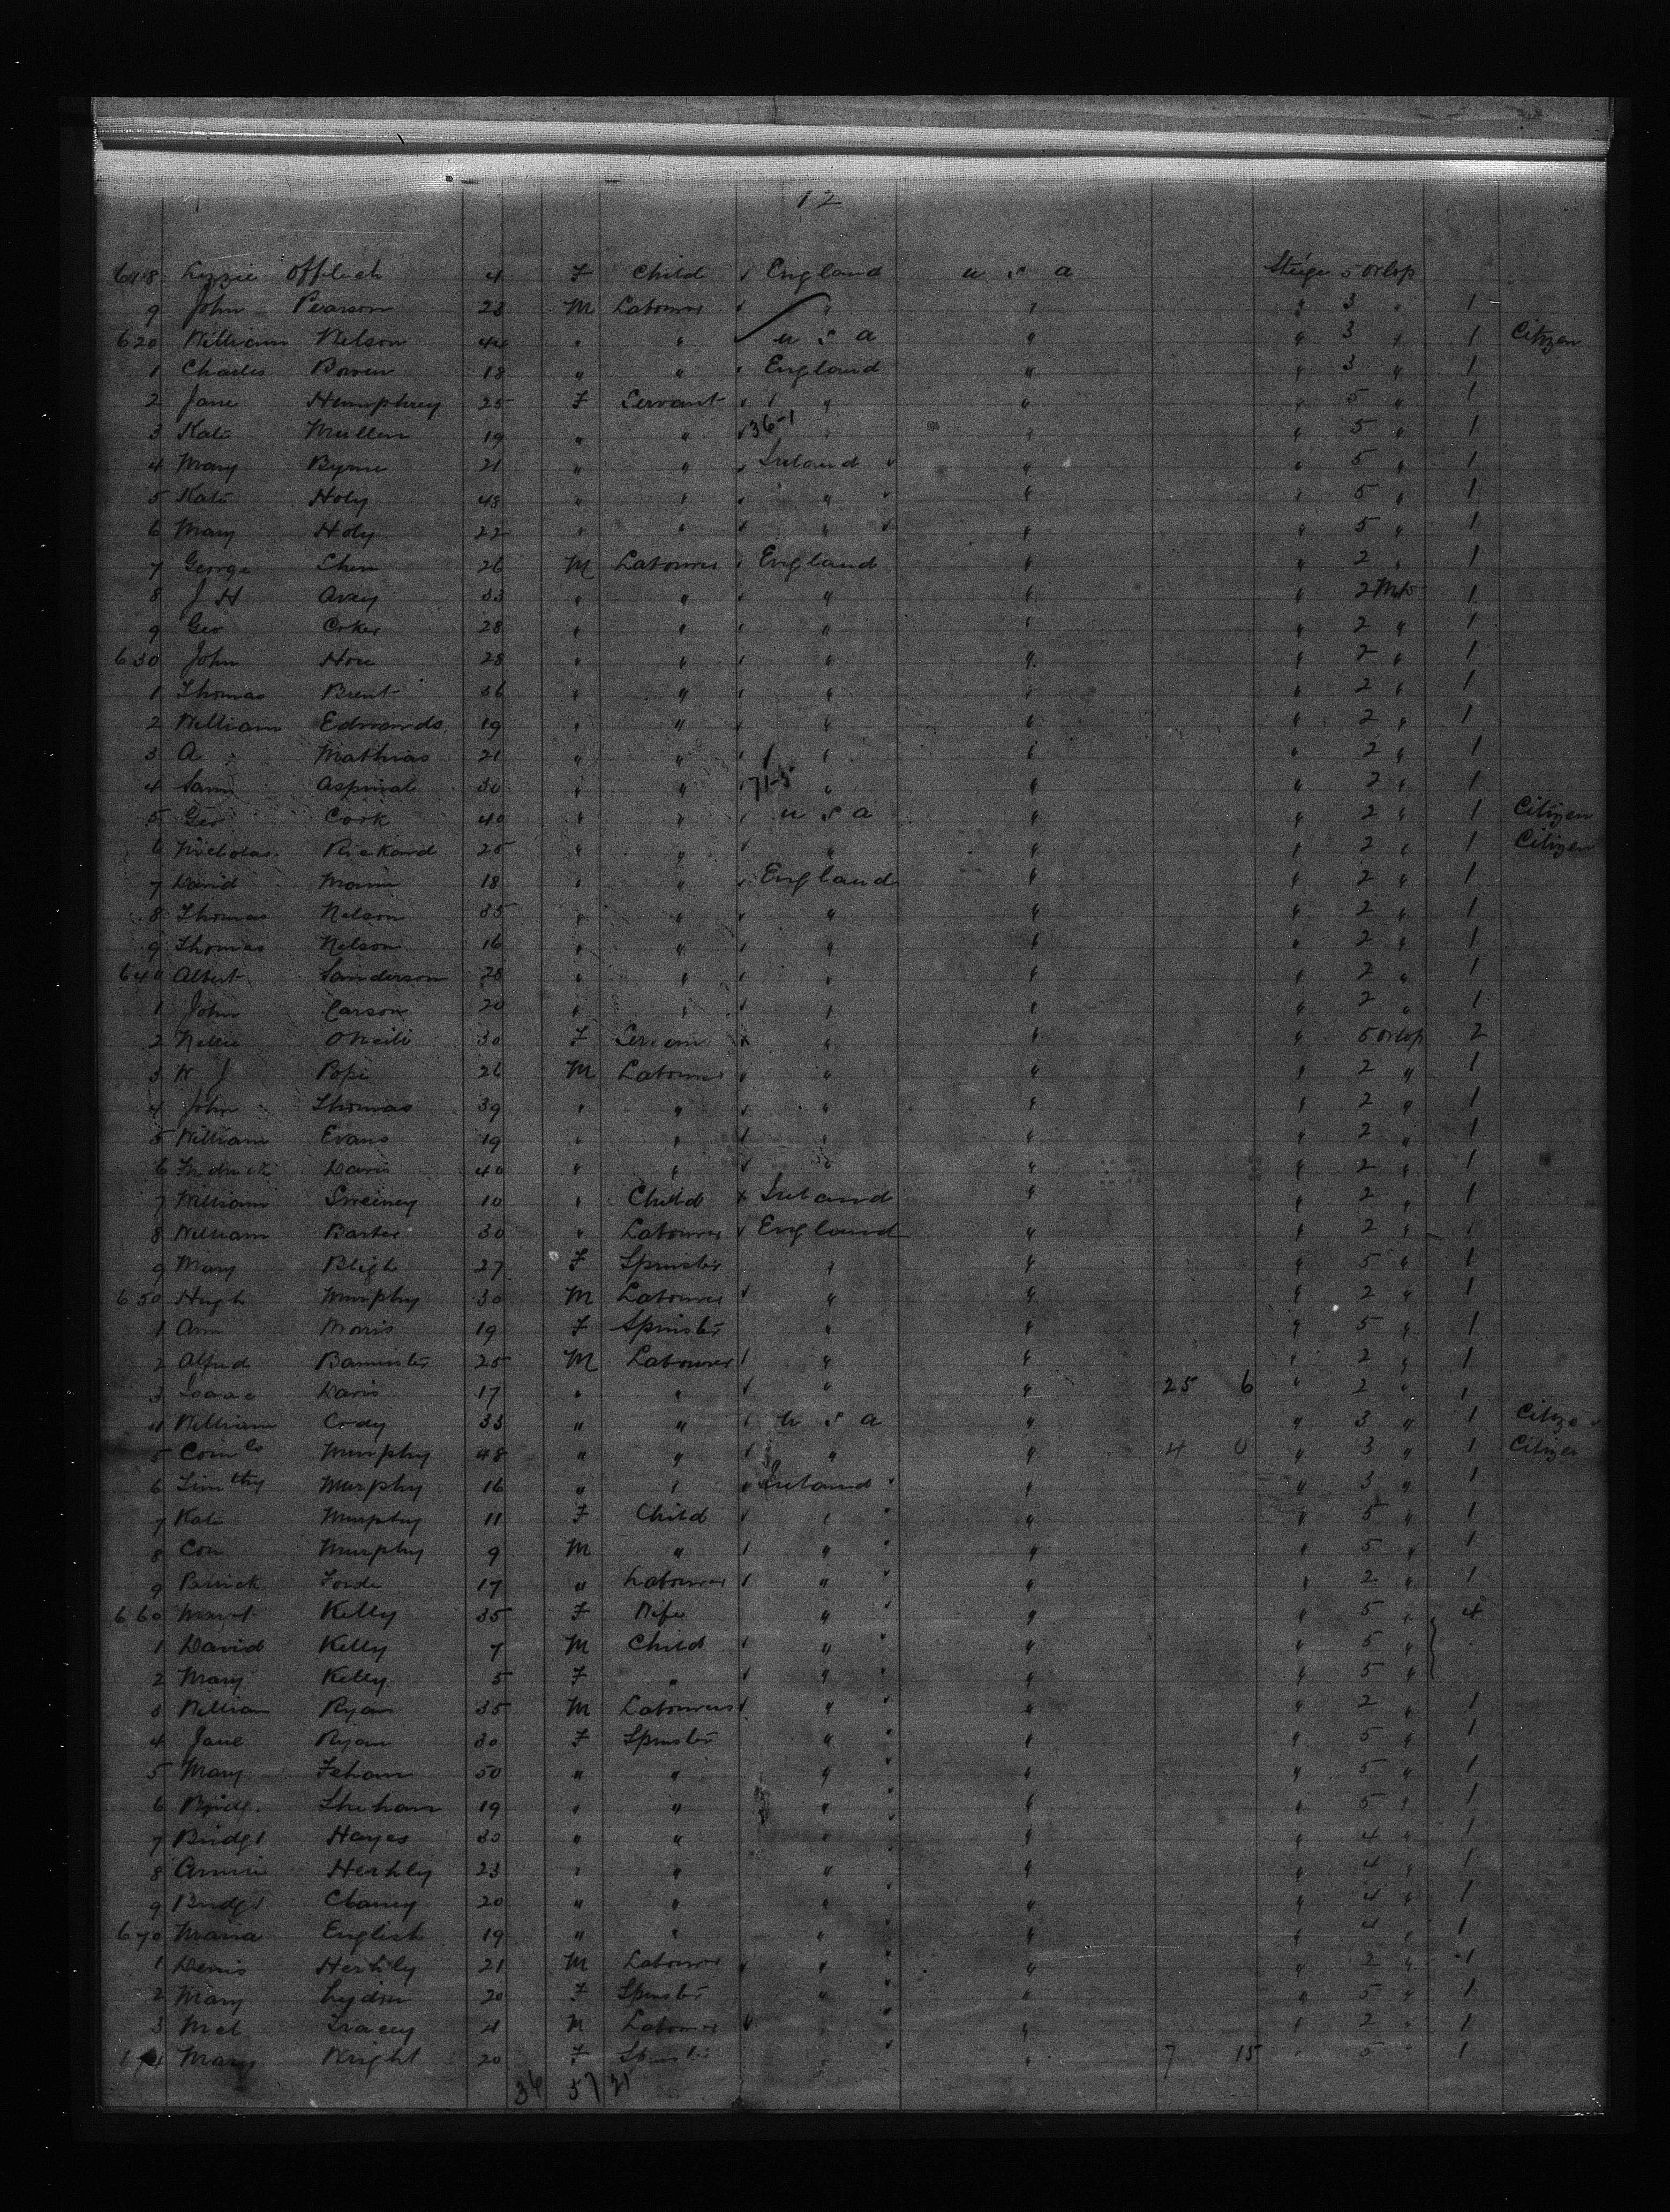 12
618 Lizzie Offlech 4 F Child England U S A Steige 5 Orlop
9 John Pearson 23 M Labourer " " " 3 " 1
620 William Nelson 44 " " U S A " " 3 " 1 Citizen
1 Charles Bowen 18 " " England " " 3 " 1
2 Jane Humphrey 25 F Servant " " " 5 " 1
3 Kate Mullen 19 " " 36-1 " " " 5 " 1
4 Mary Byrne 21 " " Ireland " " 5 " 1
5 Kate Holy 48 " " " " " 5 " 1
6 Mary Holy 22 " " " " " 5 " 1
7 George Chen 26 M Labourer England " " 2 " 1
8 J H Avey 33 " " " " " 2 1
9 Geo Coker 28 " " " " " 2 " 1
630 John Hore 28 " " " " " 2 " 1
1 Thomas Brent 36 " " " " " 2 " 1
2 William Edwards 19 " " " " " 2 " 1
3 A Mathias 21 " " " " " 2 " 1
4 Sam Aspinal 30 " " 71-5 " " " 2 " 1
5 Geo Cook 40 " " U S A " " 2 " 1 Citizen
6 Nicholas Rickard 25 " " " " " 2 " 1 Citizen
7 David Mann 18 " " England " " 2 " 1
8 Thomas Nelson 35 " " " " " 2 " 1
9 Thomas Nelson 16 " " " " " 2 " 1
640 Albert Sanderson 28 " " " " " 2 " 1
1 John Carson 20 " " " " " 2 " 1
2 Nellie ONeill 30 F Servant " " " 5 Orlop 2
3 W J Pope 26 M Labourer " " " 2 " 1
4 John Thomas 39 " " " " " 2 " 1
5 William Evans 19 " " " " " 2 " 1
6 Fredrick Davis 40 " " " " " 2 " 1
7 William Sweeney 10 " Child Ireland " " 2 " 1
8 William Barter 30 " Labourer England " " 2 " 1
9 Mary Bligh 27 F Spinster " " " 5 " 1
650 Hugh Murphy 30 M Labourer " " " 2 " 1
1 Ann Morris 19 F Spinster " " " 5 " 1
2 Alfred Bannister 25 M Labourer " " " 2 " 1
3 Isaac Davis 17 " " " " 25 6 " 2 " 1
4 William Cody 33 " " U S A " " 3 " 1 Citizen
5 Corn ls Murphy 48 " " " " 4 0 " 3 " 1 Citizen
6 Timthy Murphy 16 " " Ireland " " 3 " 1
7 Kate Murphy 11 F Child " " " 5 " 1
8 Con Murphy 9 M " " " " 5 " 1
9 Patrick Forde 17 " Labourer " " " 2 " 1
660 Margt Kelly 35 F Wife " " " 5 " 4
1 David Kelly 7 M Child " " " 5 "
2 Mary Kelly 5 F " " " " 5 "
3 William Ryan 35 M Labourer " " " 2 " 1
4 Jane Ryan 30 F Spinster " " " 5 " 1
5 Mary Feham 50 " " " " " 5 " 1
6 Bridg. Sheham 19 " " " " " 5 " 1
7 Bridgt Hayes 30 " " " " " 4 " 1
8 Annie Herhly 23 " " " " " 4 " 1
9 Bridgt Clancy 20 " " " " " 4 " 1
670 Maria English 19 " " " " " 4 " 1
1 Denis Herhily 21 M Labourer " " " 2 " 1
2 Mary Lydon 20 F Spinster " " " 5 " 1
3 Mcl Tracey 21 M Labourer " " " 2 " 1
Mary Knight 20 F Spinster " " 7 15 " 5 " 1
36 57 21